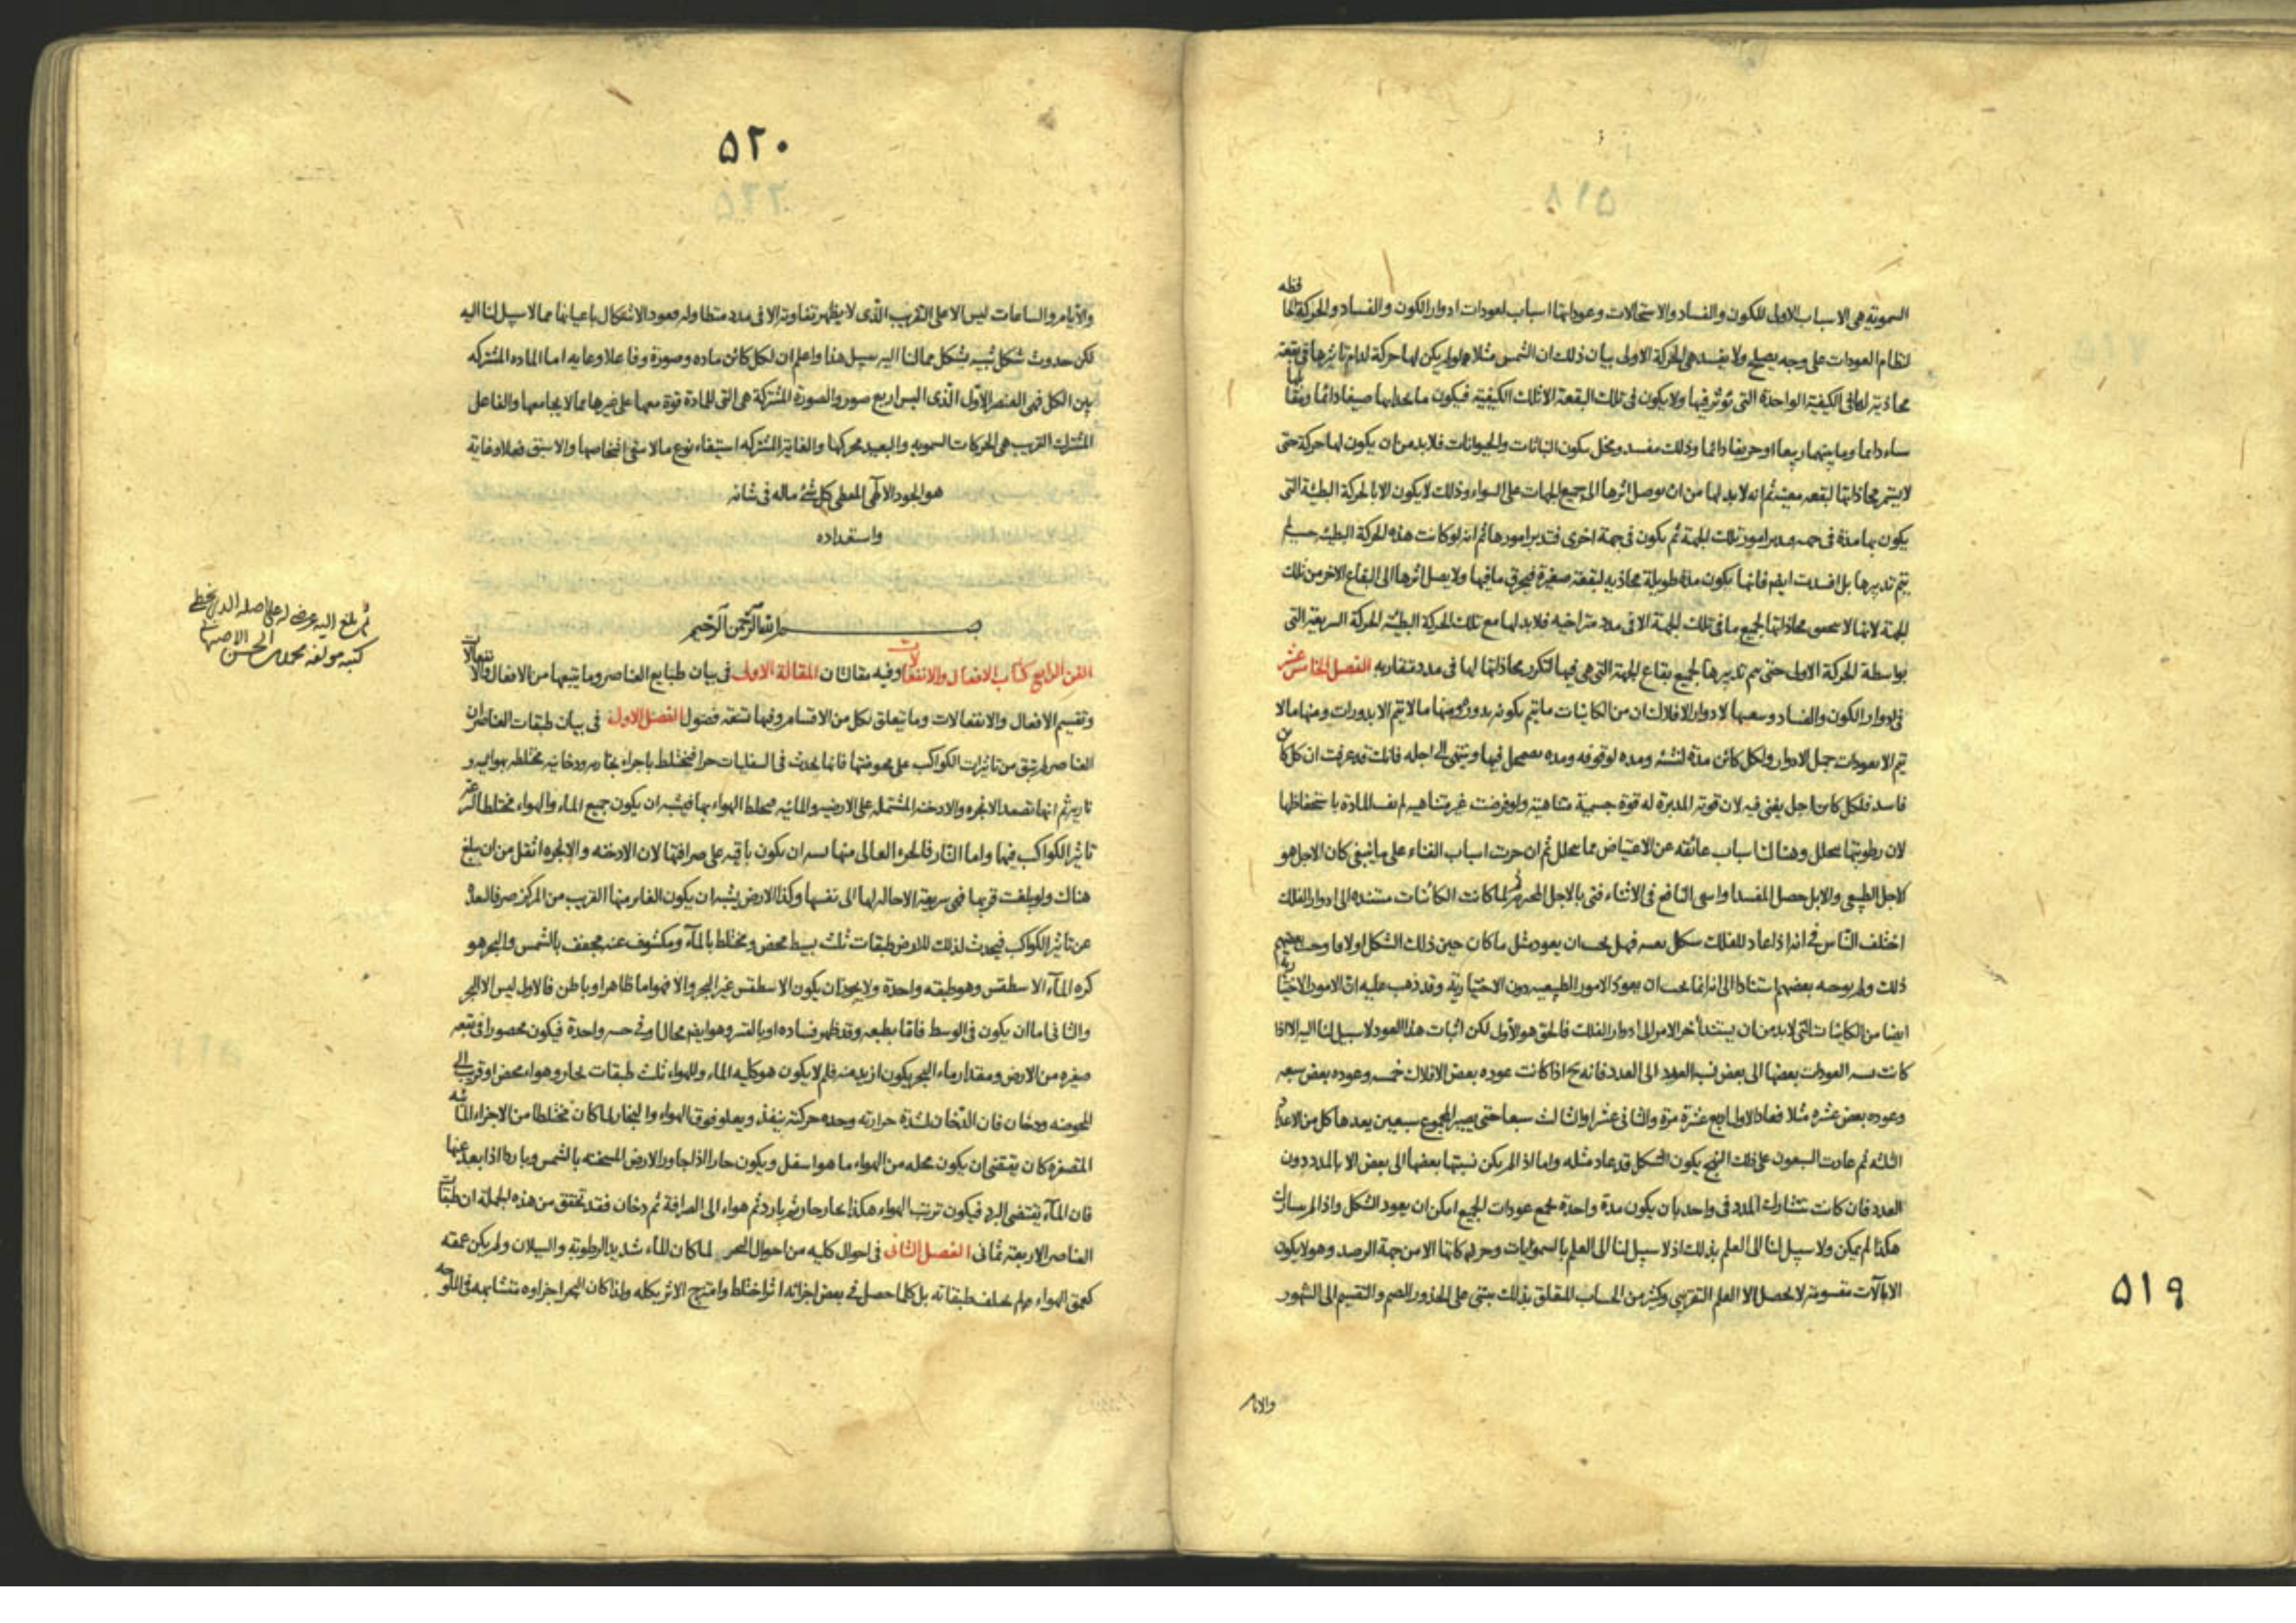 السموية هى الاسباب الاول للكون والفساد والاستحالات وعوداتها اسباب لعودات ادوار الكون والفساد والحركة الحافظه
لنظام العودات على وجه يصلح ولا يفسد هى الحركة الاولى بيان ذلك ان الشمس مثلا لو لم يكن لها حركة لدام تاثيرها فى بقعة
محاذية لها فى الكيفية الواحدة التى تؤثر فيها ولا يكون فى تلك البقعة الا تلك الكيفية فيكون ما يحاذيها صيفا دائما
شتاء دائما وما بينهما ربيعا او خريفا دائما وذلك مفسد ومخل بكون النباتات والحيوانات فلا بد من ان يكون لها حركة حتى
لا يستمر محاذاتها لبقعه معينه ثم انه لا بد لها من ان يوصل اثرها الى جميع الجهات على السواء وذلك لا يكون الا بالحركة البطيئة التى
يكون بها مدة فى جهه تدبر امور تلك الجهة ثم يكون فى جهة اخرى فتدبر امورها ثم انه لو كانت هذه الحركة البطيئه
يتم تدبيرها بل افسدت ايضا فانها يكون مدة طويلة محاذيه لبقعة صغيرة فيحرق ما فيها ولا يصل اثرها الى البقاع الاخر من تلك
الجهة لانها لا محاذاتها لجميع ما فى تلك الجهة الا فى مدد متراخيه فلا بد لها مع تلك الحركة البطيئه الحركة السريعة التى
بواسطة الحركة الاولى حتى يتم تدبيرها لجميع بقاع الجهة التى هى فيها لتكرر محاذاتها لها فى مدد متقاربه الفصل الخامس عشر
فى ادوار الكون والفساد لادوار الافلاك ان من الكائنات ما يتم بكونه بدورة ومنها ما لا يتم الا بدورات ومنها ما لا
يتم الا بعودات جمل الادوار ولكل كائن مدة لنشئه ومده لوقوفه ومده يضمحل فيها وينتهى الى اجله فانك قد عرفت ان كل كائن
فاسد فلكل كائن اجل يفنى فيه لان قوته المدبرة له قوة جسمية متناهية ولو فرضت غير متناهيه لم تف المادة باستحفاظها
لان رطوبتها تتحلل وهنا لنا اسباب عائقه عن الاعتياض مما يتحلل ثم ان جرت اسباب الفناء على ما ينبغى كان الاجل هو
كاجل الطبيعى والا بل حصل المفسد
اختلف الناس فى انه اذا عاد للفلك شكل بعينه فهل يجب ان يعود مثل ما كان حين ذلك الشكل اولا
ذلك ولم يوجبه بعضهم استنادا الى انه انما يجب ان يعود الامور الطبيعيه دون الاختيارية وقد ذهب عليه ان الامور الاختيارية
ايضا من الكائنات التى لا بد من ان يستند اخر الامر الى ادوار الفلك فالحق هو الاول لكن اثبات هذا العود لا سبيل لنا اليه الا اذا
كانت نسبه العودات بعضها الى بعض نسبه العدد الى العدد فانه ح اذا كانت عوده بعض الافلاك خمسه وعوده بعض سبعه
وعوده بعض عشره مثلا فعاد الاول اربع عشرة مرة والثانى عشرا والثالث سبعا حتى يصير المجموع سبعين يعدها كل من الاعداد
الثلثه ثم عادت السبعون على ذلك النهج يكون الشكل قد عاد مثله واما اذا لم يكن نسبتها بعضها الى بعض الا بالمدد دون
العدد فان كانت تتشارك المدد فى واحد بان يكون مدة واحدة تجمع عودات الجميع امكن ان يعود الشكل واذا لم يتشارك
هكذا لم يمكن ولا سبيل لنا الى العلم بذلك اذ لا سبيل لنا الى العلم بالسموئيات وحركاتها الا من جهة الرصد وهو لا يكون
الا بالآلات مقسومة لا يحصل الا العلم التقريبى وكثير من الحساب المتعلق بذلك يبتنى على الجذور الصم والتقسيم الى الشهور
٥١٩
والايام
٥٢٠
والايام والساعات ليس الا على التقريب الذى لا يظهر تفاوته الا فى مدد متطاوله فعود الاشكال باعيانها مما لا سبيل لنا اليه
لكن حدوث شكل شبيه بشكل مما لنا اليه سبيل هذا واعلم ان لكل كائن ماده وصورة وفاعلا وغايه اما الماده المشتركه
بين الكل فهى العنصر الاول الذى البس اربع صور والصورة المشتركة هى التى للمادة قوة معها على غيرها مما لا يجامعها والفاعل
المشترك القريب هى الحركات السمويه والبعيد محركها والغاية المشتركه استبقاء نوع ما لا يبقى اشخاصها والاسبق فعلا وغاية
هو الجود الالهى المعطى كل شئ ماله فى شانه
واستعداده
بسم الله الرحمن الرحيم
الفن الرابع كتاب الافعال والانفعالات وفيه مقالتان المقالة الاولى فى بيان طبايع العناصر وما يتبعها من الافعال والانفعالات
وتقسيم الافعال والانفعالات وما يتعلق بكل من الاقسام وفيها تسعة فصول الفصل الاول فى بيان طبقات العناصر ان
العناصر لم تبق من تاثيرات الكواكب على محوضتها فانها يحدث فى السفليات حرا فيختلط باجزاء بخاريه ودخانيه مختلطه بهوائيه و
نارية ثم انها تصعد الابخره والادخنه المشتمله على الارضيه والمائيه فيخلط الهواء بها فيشبه ان يكون جميع الماء والهواء مختلطا
تاثير الكواكب فيها واما النار فالجزء العالى منها يشبه ان يكون باقيه على صرافتها لان الادخنه والابخره اثقل من ان يبلغ
هناك ولو بلغت قربها فهى سريعة الاحاله لها الى نفسها وكذا الارض يشبه ان يكون الغائر منها القريب من المركز صرفا لبعده
عن تاثير الكواكب فيحدث لذلك للارض طبقات ثلث بسيط محض ومختلط بالماء ومكشوف عنه مجفف بالشمس والبحر هو
كره الماء الاسطقس وهو طبقه واحدة ولا يجوز ان يكون الاسطقس غير البحر والا فهو اما ظاهر او باطن فالاول ليس الا البحر
والثانى اما ان يكون فى الوسط فاما بطبعه وقد ظهر فساده او بالقسر وهو ايضا محال او فى حيز واحدة فيكون محصورا فى بقعه
صغيره من الارض ومقدار ماء البحر يكون ازيد منه فلم لا يكون هو كلية الماء وللهواء ثلث طبقات بخار وهواء محض او قريب الى
المحوضه ودخان فان الدخان لشدة حرارته وحده حركته ينفذ ويعلو فوق الهواء والبخار لما كان مختلطا من الاجزاء المائيه
المتصغره كان يقتضى ان يكون محله من الهواء ما هو اسفل ويكون حارا اذا جاور الارض المسخنه بالشمس وباردا اذا بعد عنها
فان الماء يقتضى البرد فيكون ترتيب الهواء هكذا بخار حار ثم بارد ثم هواء الى الصرافة ثم دخان فقد تحقق من هذه الجملة ان طبقات
العناصر الاربعة ثمانى الفصل الثانى فى احوال كليه من احوال البحر لما كان الماء شديد الرطوبة والسيلان ولم يكن عمقه
كعمق الهواء لم يختلف طبقاته بل كلما حصل فى بعض اجزائه اثر اختلط وامتزج الاثر بكله ولذا كان البحر اجزاوه متشابهه فى الملوحه
ثم بلغ اليه عرضه له على اصله الذى بخطى
كتبه مولفه محمد بن الحسن الاصبهانى